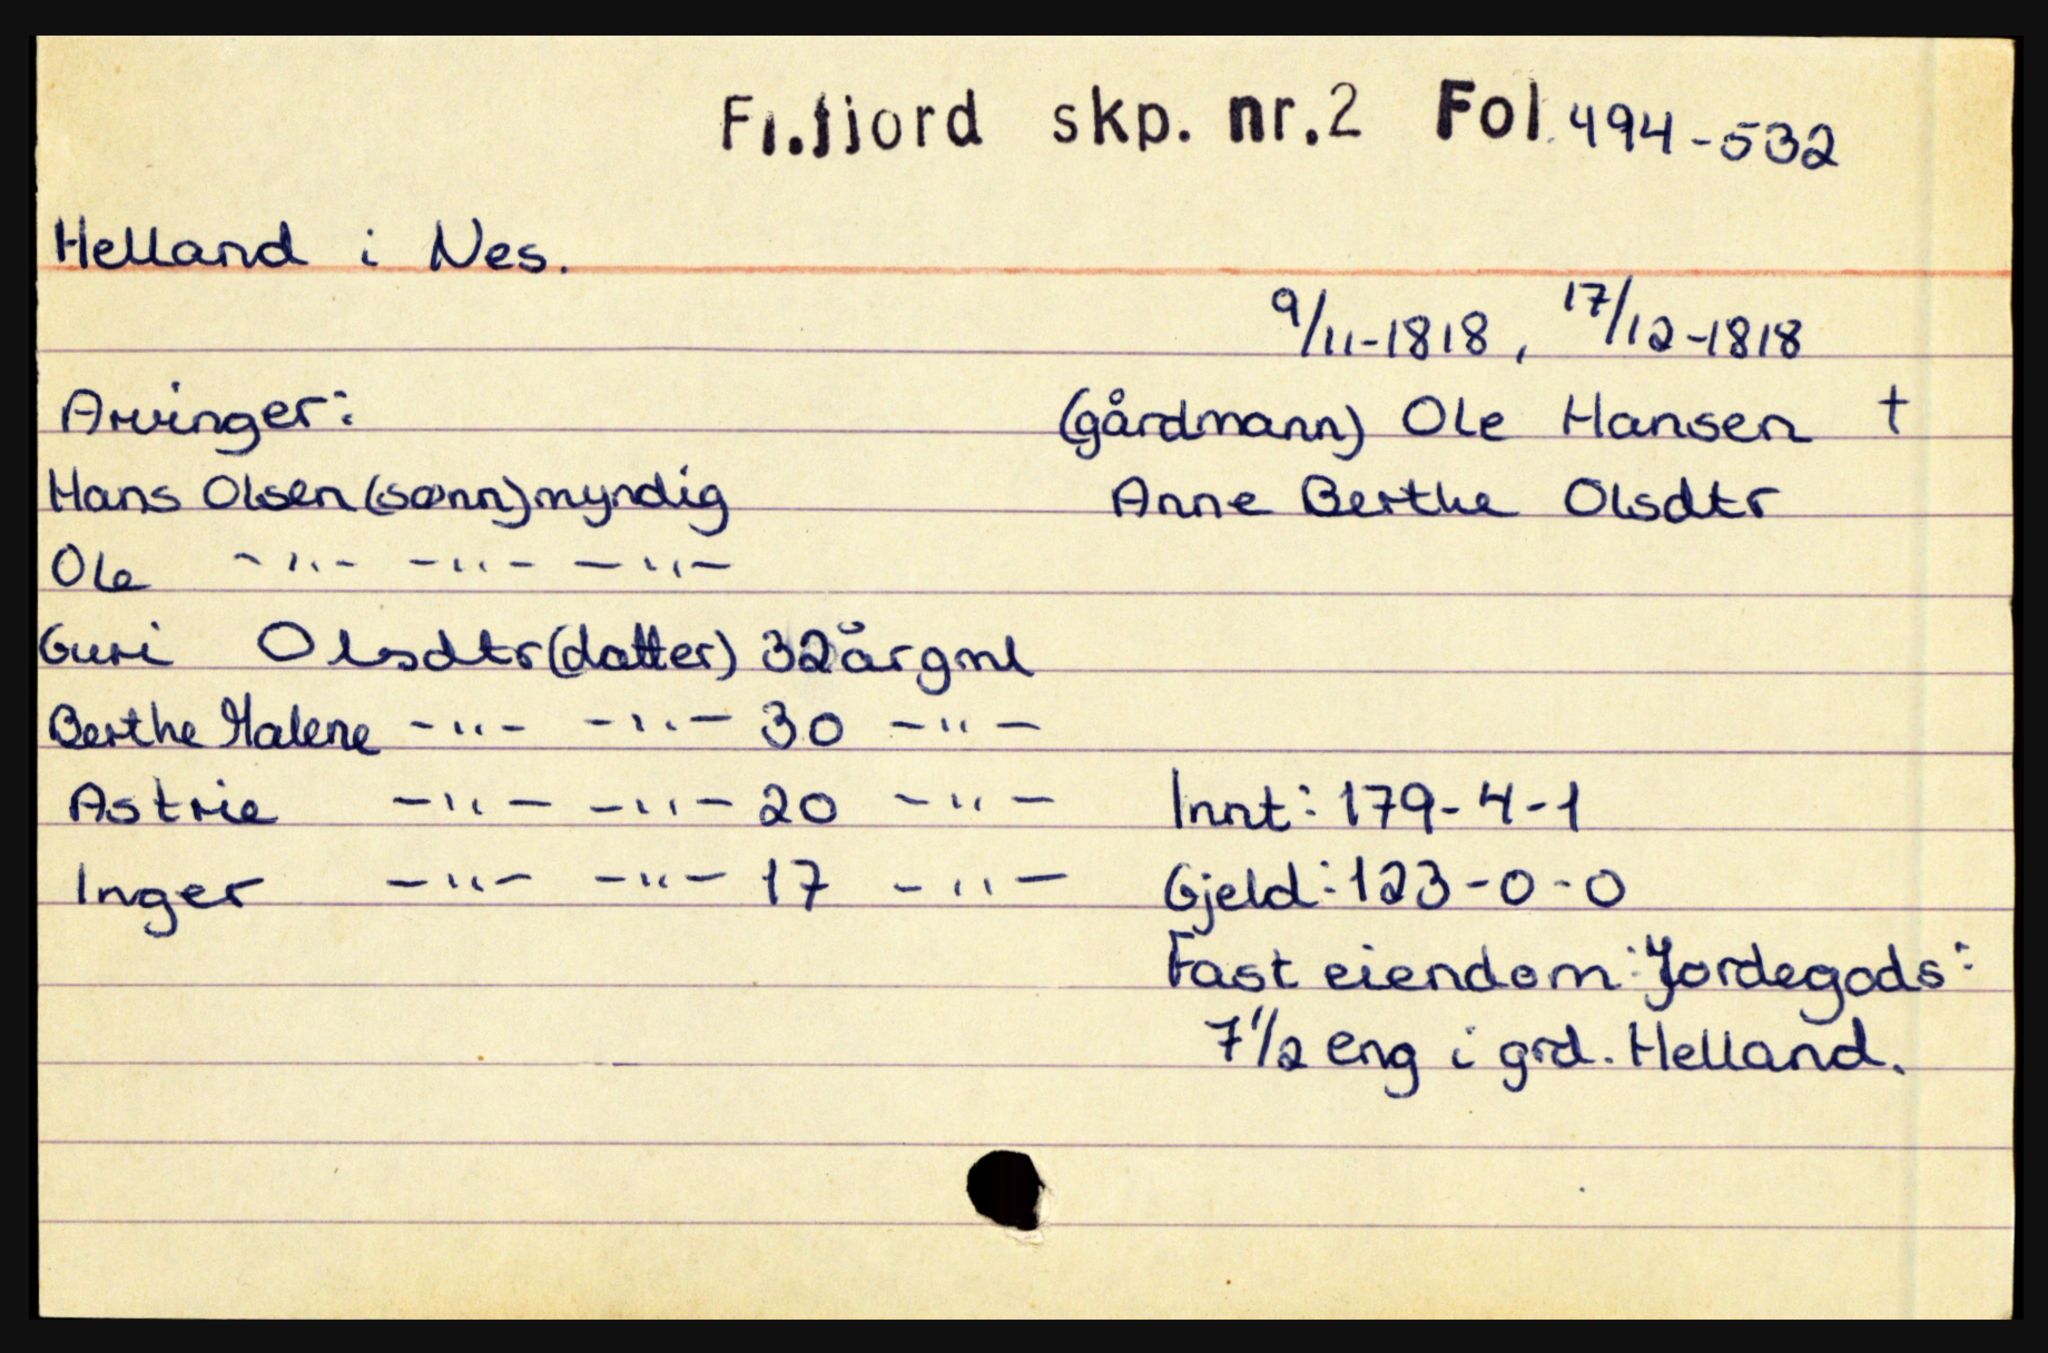 Fi.fjord skp. nr.2 Fol. 494-532
Helland i Nes.
9/11-1818, 17/12-1818
Arvinger: (gårdmann) Ole Hansen †
Hans Olsen (sønn) myndig Anne Berthe Olsdtr
Ole -"- -"- -"-
Guri Olsdtr (datter) 32 år gml
Berthe Malene -"- -"- 30 -"-
Astrie -"- -"- 20 -"- Innt: 179-4-1
Inger -"- -"- 17 -"- Gjeld: 123-0-0
Fast eiendom: Jordegods:
7 1/2 eng i grd. Helland.